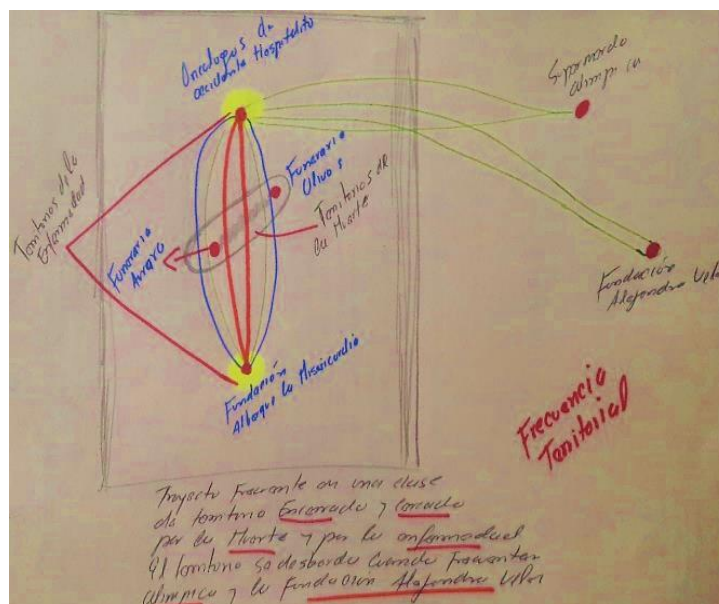 Oncologos de
occidente Hospitalito
Supermercado
olimpica
Territorios de la
Enfermedad
Funeraria
Olivos
Territorios de
la Muerte
Funeraria
Fundación
Alejandra Velez
Fundación
Albergue la Misericordia
Frecuencia
Territorial
Trayecto Frecuente en una clase
de territorio Encerrado y cercado
por la Muerte y por la enfermedad
El territorio se desborda cuando frecuentan
olimpica y la Fundación Alejandra Velez